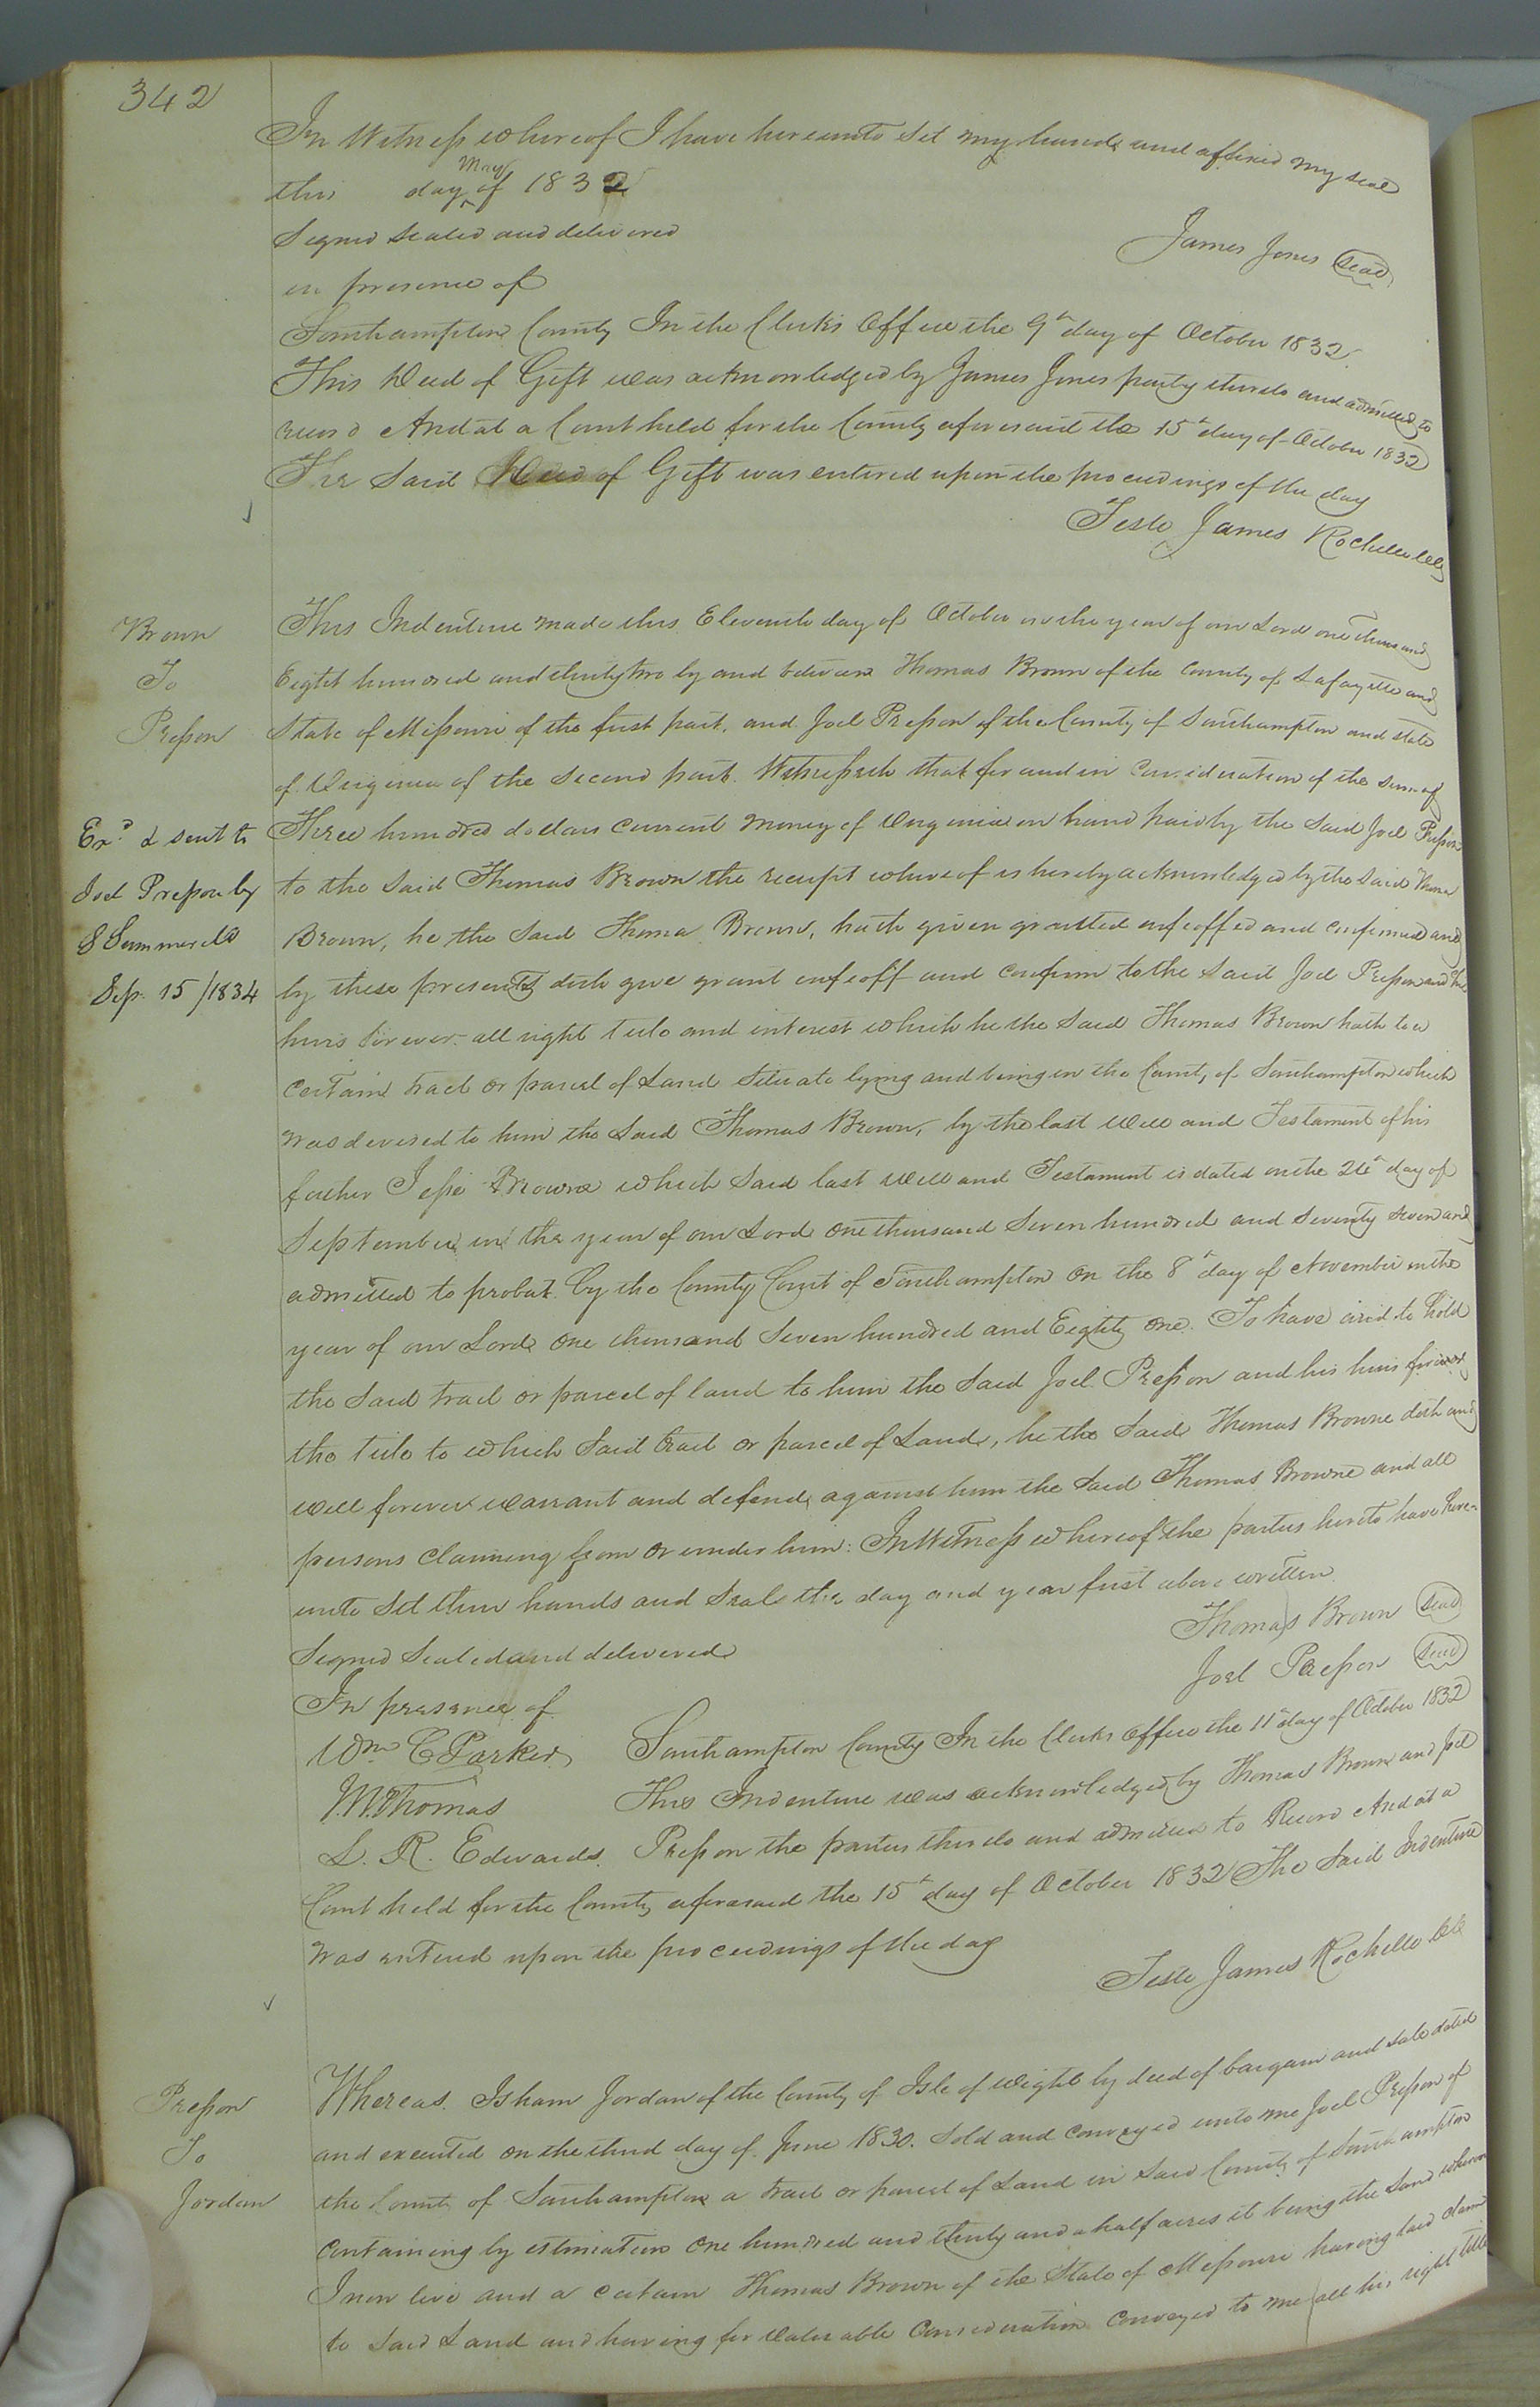 342
In Witness whereof I have hereunto set my hand and affixed my seal
this day of May 1832
Signed sealed and delivered
James Jones Seal
in presence of
Southampton County In the Clerks Office the 9th day of October 1832.
This Deed of Gift was acknowledged by James Jones party thereto and admitted to
record And at a Court held for the County aforesaid the 15th day of October 1832
The Said Deed of Gift was entered upon the proceedings of the day
Teste James Rochelle Clk
Brown
To
Presson
This Indenture made this Eleventh day of October in the year of our Lord one thousand
Eight hundred and thirty two by and between Thomas Brown of the County of Lafayette and
State of Missouri of the first part, and Joel Presson of the County of Southampton and state
of Virginia of the second part. Witnesseth that for and in consideration of the sum of
Three hundred dollars current money of Virginia in hand paid by the said Joel Presson
to the said Thomas Brown the receipt whereof is hereby acknowledged by the said Thomas
Brown, he the said Thomas Brown, hath given granted enfeoffed and confirmed and
by these presents doth give grant enfeoff and confirm to the said Joel Presson and his
heirs forever all right title and interest which he the said Thomas Brown hath to a
certain tract or parcel of Land situate lying and being in the County of Southampton which
was devised to him the said Thomas Brown, by the last Will and Testament of his
father Jesse Browne which said last Will and Testament is dated on the day of
September in the year of our Lord one thousand seven hundred and seventy seven and
admitted to probat by the County Court of Southampton on the 8th day of November in the
year of our Lord one thousand seven hundred and Eighty one. To have and to hold
the said tract or parcel of land to him the said Joel Presson and his heirs forever
the title to which said tract or parcel of Land, he the said Thomas Browne doth and
will forever warrant and defend against him the said Thomas Browne and all
persons claiming from or under him: In Witness whereof the parties hereto have here-
unto set their hands and seals the day and year first above written
Ex.d & sent to
Joel Presson by
S Summerell
Sep. 15/1834
Thomas Brown Seal
Signed Sealed and delivered
Joel Presson Seal
In presence of
Wm C Parker
J.W. Thomas
L. R. Edwards.
Southampton County In the Clerks Office the 11th day of October 1832
This Indenture was acknowledged by Thomas Brown and Joel
Presson the parties thereto and admitted to Record And at a
Court held for the County aforesaid the 15th day of October 1832 The Said Indenture
was entered upon the proceedings of the day
Teste James Rochelle Clk
Presson
To
Jordan
Whereas. Isham Jordan of the County of Isle of Wight by deed of bargain and sale dated
and executed on the third day of June 1830. Sold and conveyed unto me Joel Presson of
the County of Southampton a tract or parcel of Land in said County of Southampton
containing by estimation one hundred and thirty and a half acres it being the Land whereon
I now live and a certain Thomas Brown of the State of Missouri having laid claim
to said Land and having for valuable consideration conveyed to me all his right title